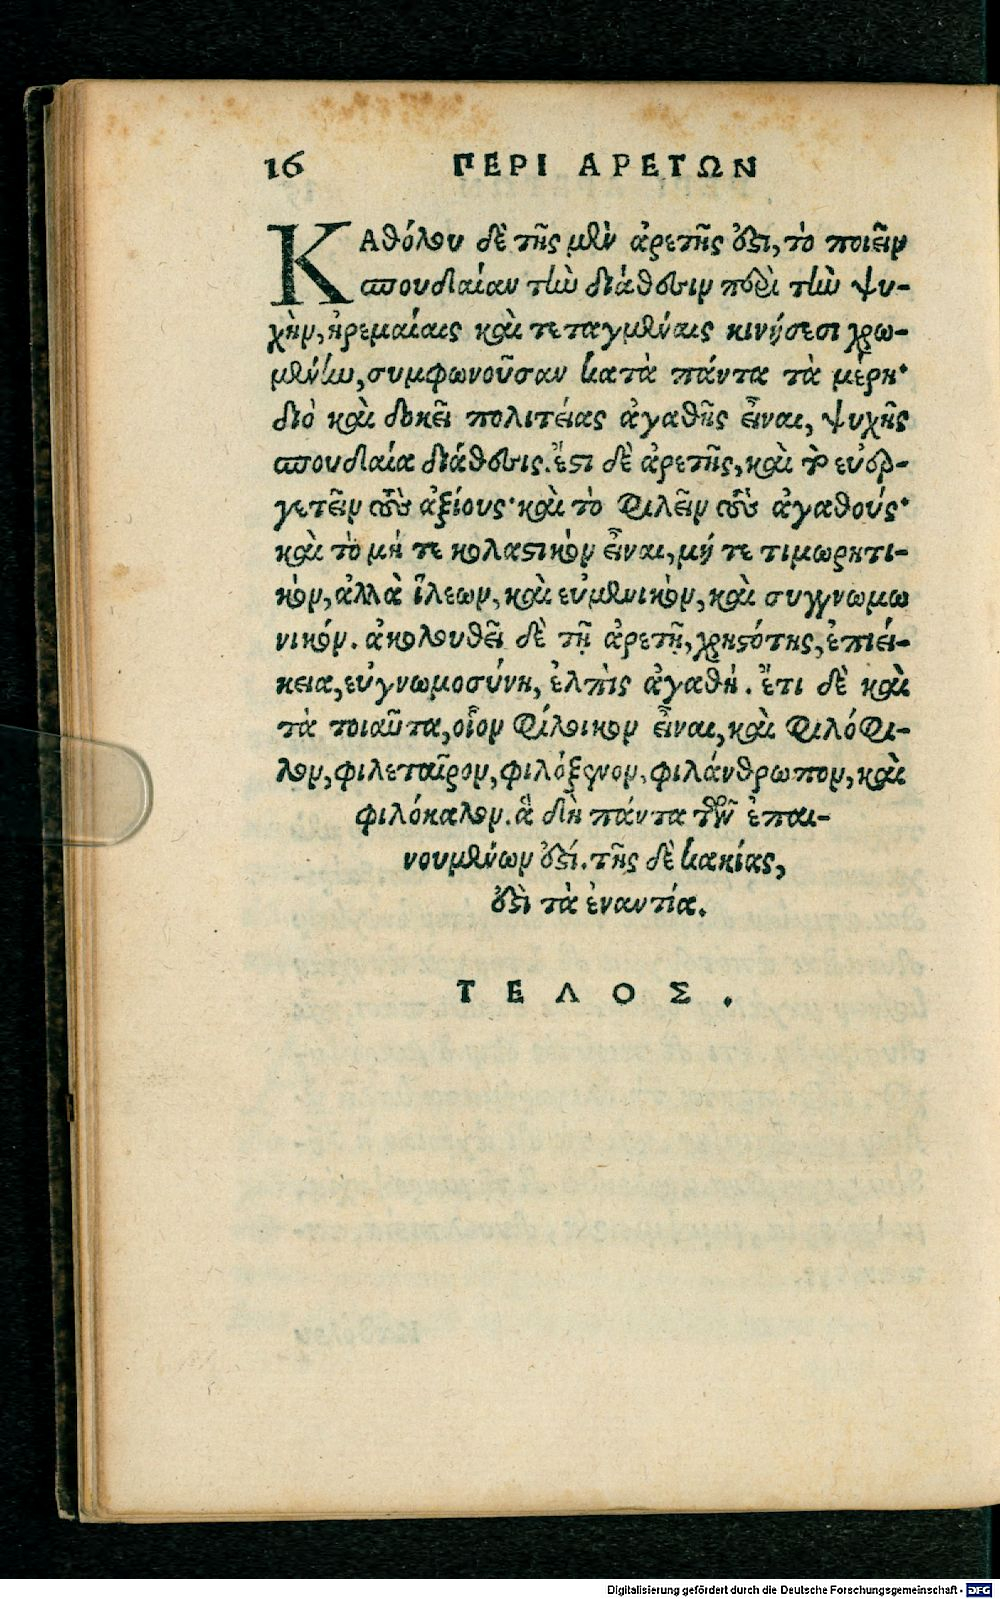 16 ΠΕΡΙ ΑΡΕΤΩΝ
ΚΑθόλου δὲ τῆς μὲν ἀρετῆς ὅ́ςι, τὸ ποιεῖν
σπουδαίαν τὴν διάθεσιν περὶ τὴν ψυ-
χὴν, ἠρεμαίαις καὶ τεταγμέναις κινήσεσι χρω-
μένην, συμφωνοῦσαν κατὰ πάντα τὰ μέρη·
διὸ καὶ δοκεῖ πολιτείας ἀγαθῆς εἶναι, ψυχῆς
σπουδαία διάθεσις. ἔςι δὲ ἀρετῆς, καὶ τὸ εὐερ-
γετεῖν τοὺς ἀξίους· καὶ τὸ φιλεῖν τοὺς ἀγαθούς·
καὶ τὸ μή τε κολαςικὸν εἶναι, μή τε τιμωρητι-
κὸν, ἀλλὰ ἵλεων, καὶ εὐμενικὸν, καὶ συγγνωμω
νικόν. ἀκολουθεῖ δὲ τῇ ἀρετῇ, χρηςότης, ἐπιεί-
κεια, εὐγνωμοσύνη, ἐλπὶς ἀγαθή. ἔτι δὲ καὶ
τὰ τοιαῦτα, οἷον φίλοικον εἶναι, καὶ φιλόφι-
λον, φιλεταῖρον, φιλόξενον, φιλάνθρωπον, καὶ
φιλόκαλον. ἃ δὴ πάντα τῶν ἐπαι-
νουμένων ἐςί. τῆς δὲ κακίας,
ἐςὶ τὰ ἐναντία.
ΤΕΛΟΣ.
Digitalisierung gefördert durch die Deutsche Forschungsgemeinschaft - DFG